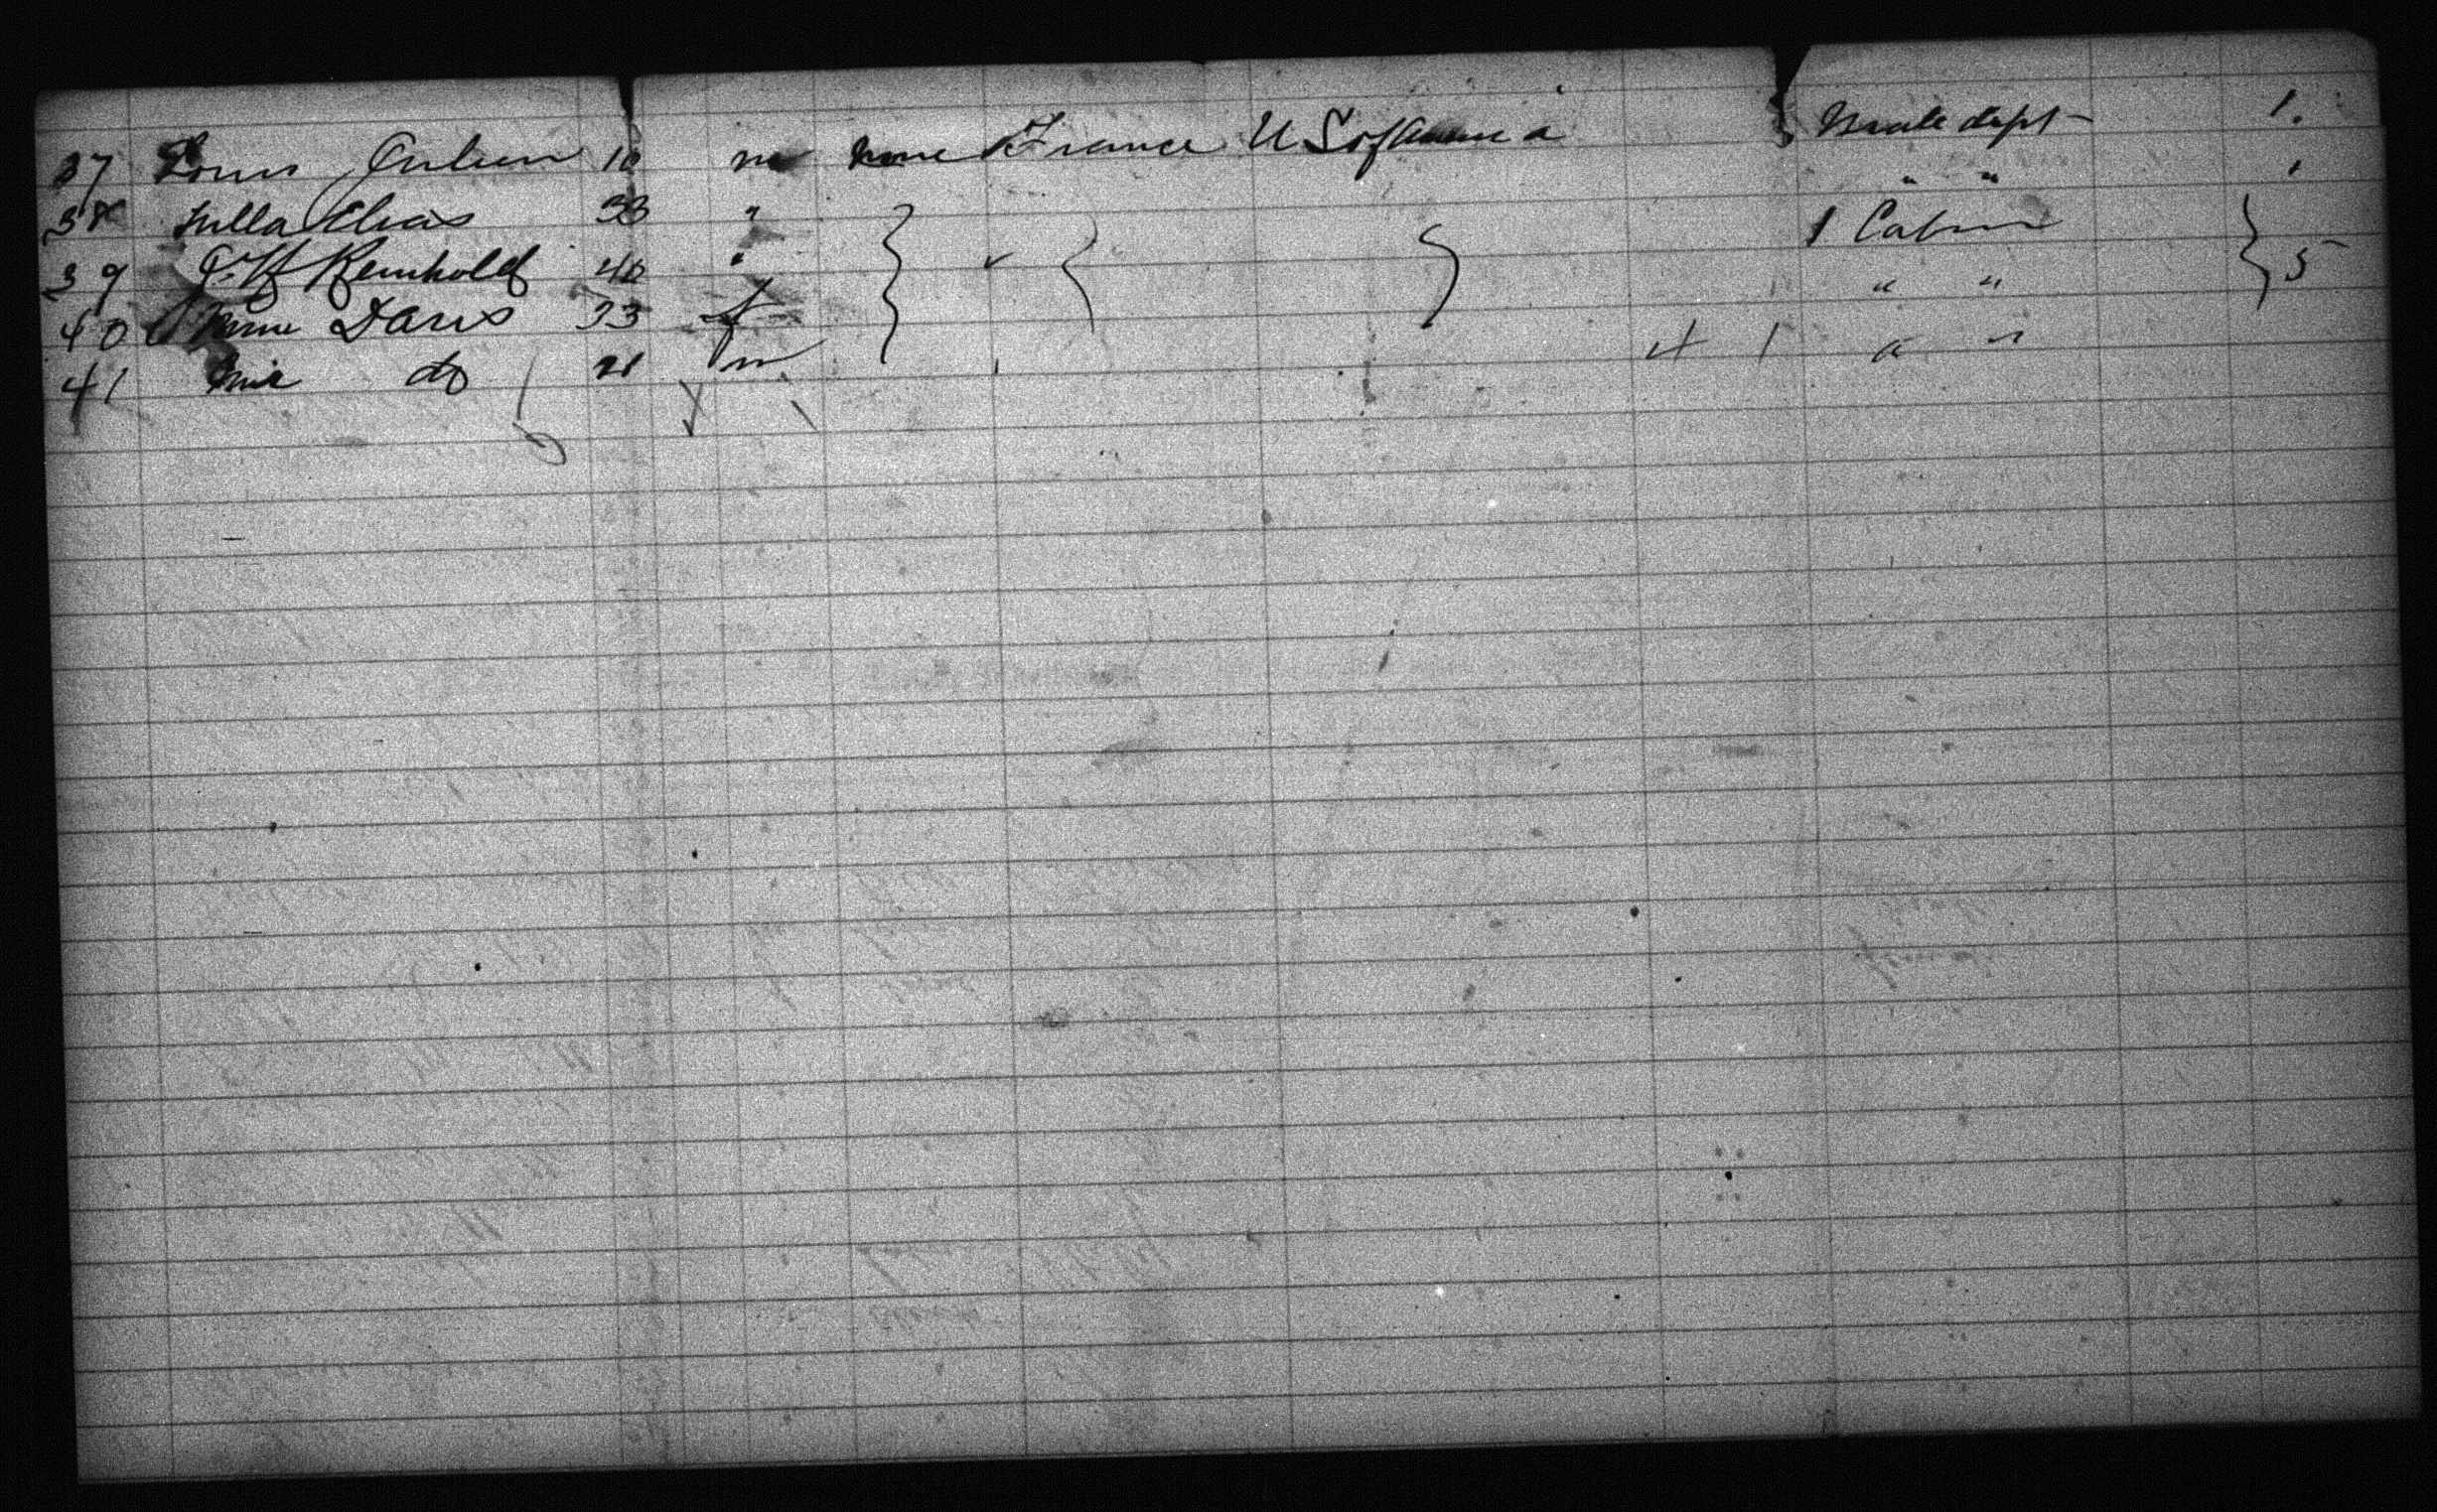 37 Louis Julien 10 m none France U S of America Male dept 1.
38 Elias 33 " " "
39 Reinhold 40 " 1 Cabin 5
40 Mme Davis 33 f " "
41 do 21 m 4 1 " "